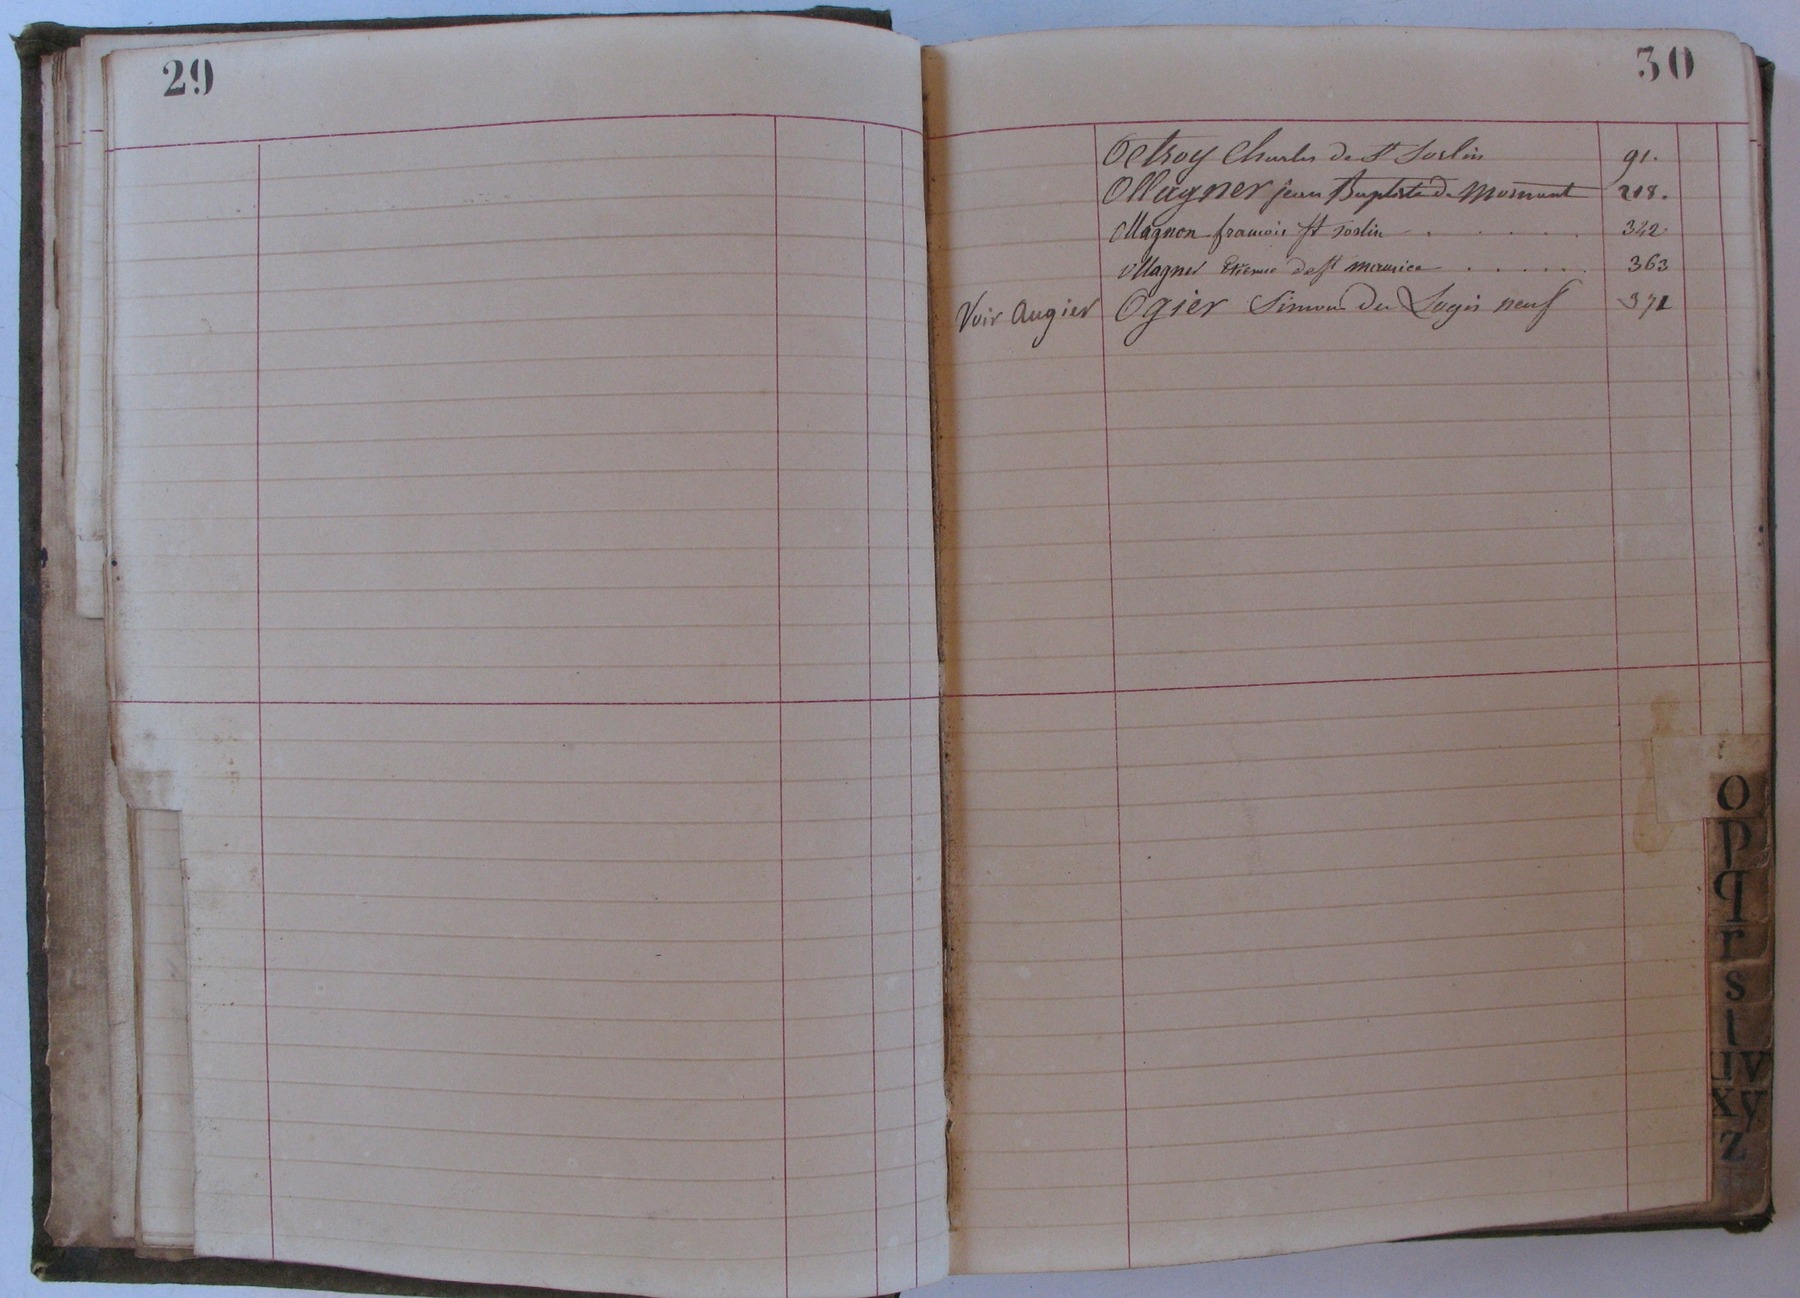 29
30
Octroy Charles de St Sorlin 91.
Ollagner jean Baptiste de Mornant 218.
Ollagnon francois St sorlin 322
Ollagner Etienne de St maurice 363
Voir Augier Ogier Simon du Logis neuf 371
O
P
q
r
s
t
u v
x y
z